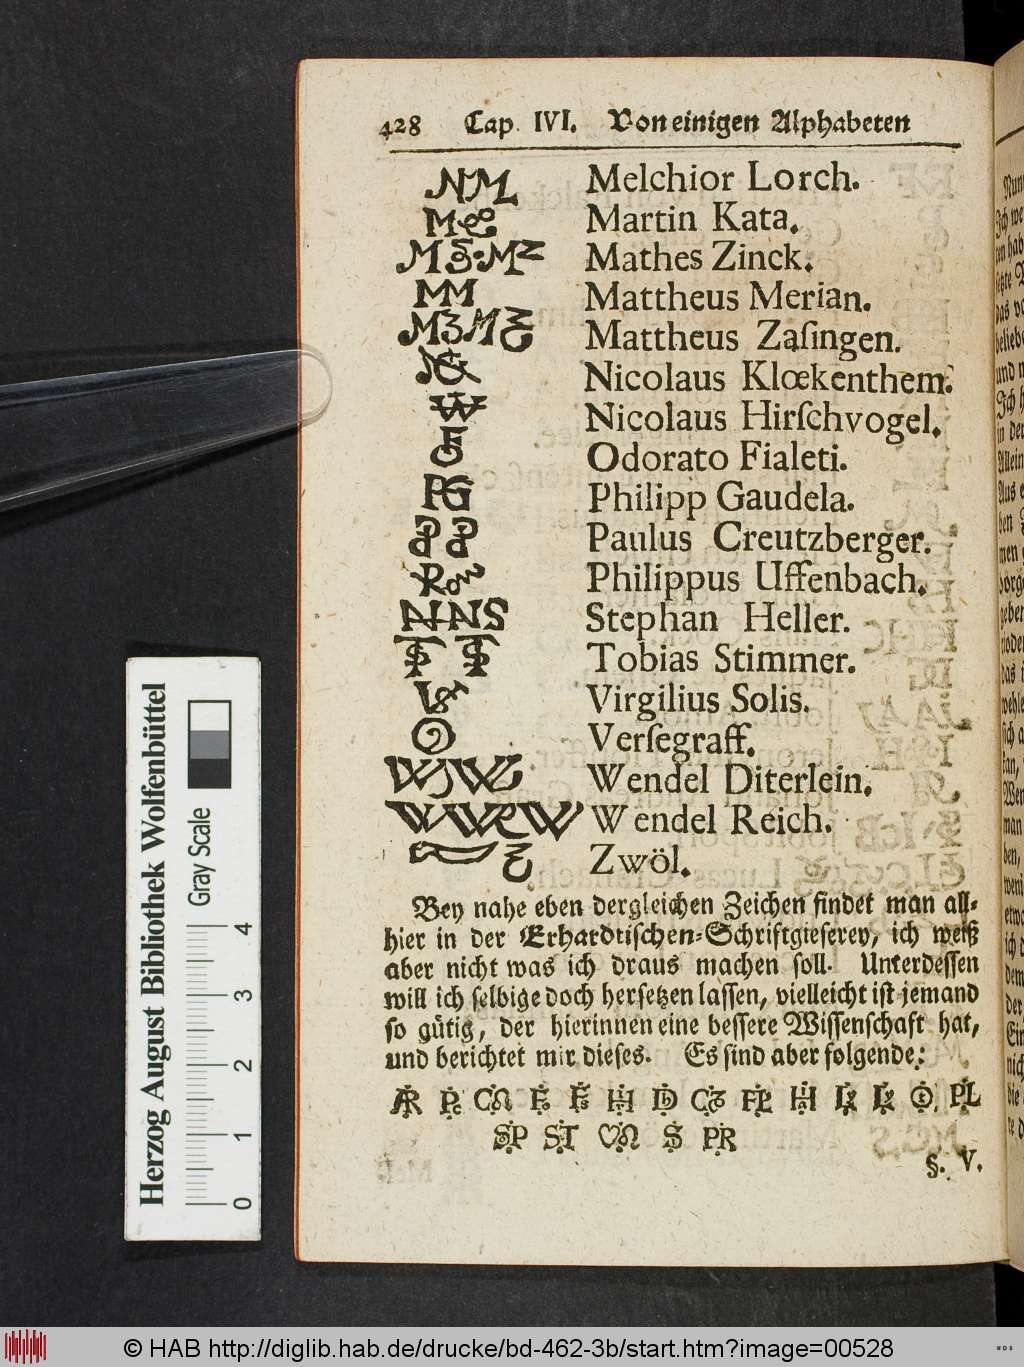 428 Cap. IVI. Von einigen Alphabeten
Melchior Lorch.
Martin Kata.
Mathes Zinck.
Mattheus Merian.
Mattheus Zaſingen.
Nicolaus Klœkenthem.
Nicolaus Hirſchvogel.
Odorato Fialeti.
Philipp Gaudela.
Paulus Creutzberger.
Philippus Uffenbach.
Stephan Heller.
Tobias Stimmer.
Virgilius Solis.
Verſegraff.
Wendel Diterlein.
Wendel Reich.
Zwöl.
Bey nahe eben dergleichen Zeichen findet man all-
hier in der Erhardtischen-Schriftgieſerey, ich weiß
aber nicht was ich draus machen ſoll. Unterdeſſen
will ich ſelbige doch herſetzen laſſen, vielleicht iſt jemand
ſo gütig, der hierinnen eine beſſere Wiſſenſchaft hat,
und berichtet mir dieſes. Es ſind aber folgende:
§. V.
Herzog August Bibliothek Wolfenbüttel
Gray Scale
0 1 2 3 4
© HAB http://diglib.hab.de/drucke/bd-462-3b/start.htm?image=00528